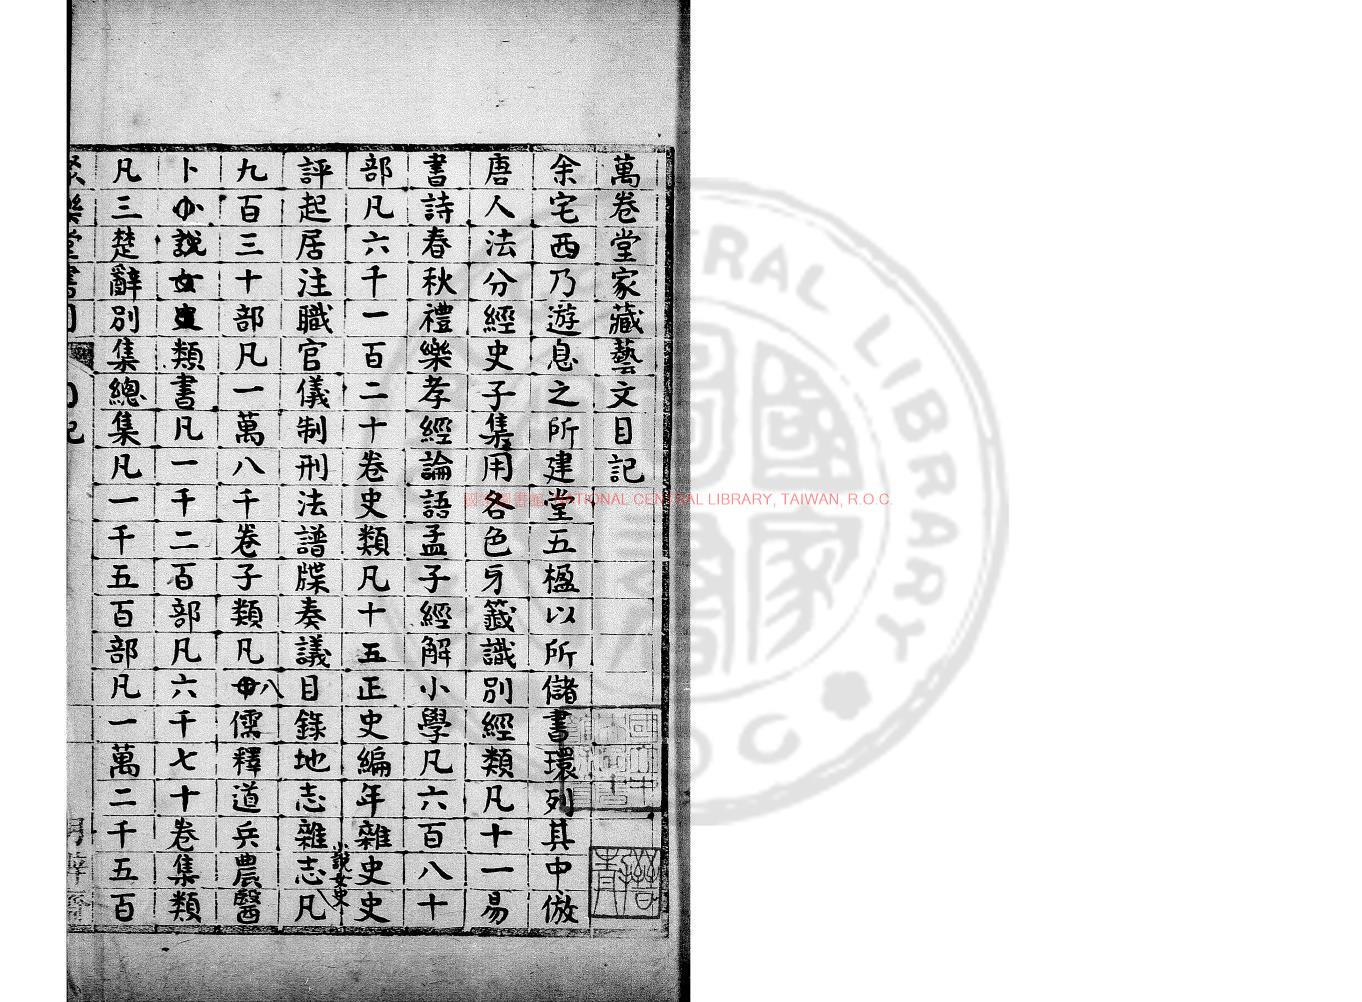 萬卷堂家藏藝文目記
余宅西乃遊息之所建堂五楹以所儲書環列其中倣
唐人法分經史子集用各色牙籤識別經類凡十一易
書詩春秋禮樂孝經論語孟子經解小學凡六百八十
部凡六千一百二十卷史類凡十五正史編年雜史史
小說女史
評起居注職官儀制刑法譜牒奏議目錄地志雜志凡
八
九百三十部凡一萬八千卷子類凡中八儒釋道兵農醫
卜小說女史類書凡一千二百部凡六千七十卷集類
凡三楚辭別集總集凡一千五百部凡一萬二千五百
聚樂堂書目
目記
國家圖書館 NATIONAL CENTRAL LIBRARY, TAIWAN, R.O.C.
CENTRAL LIBRARY